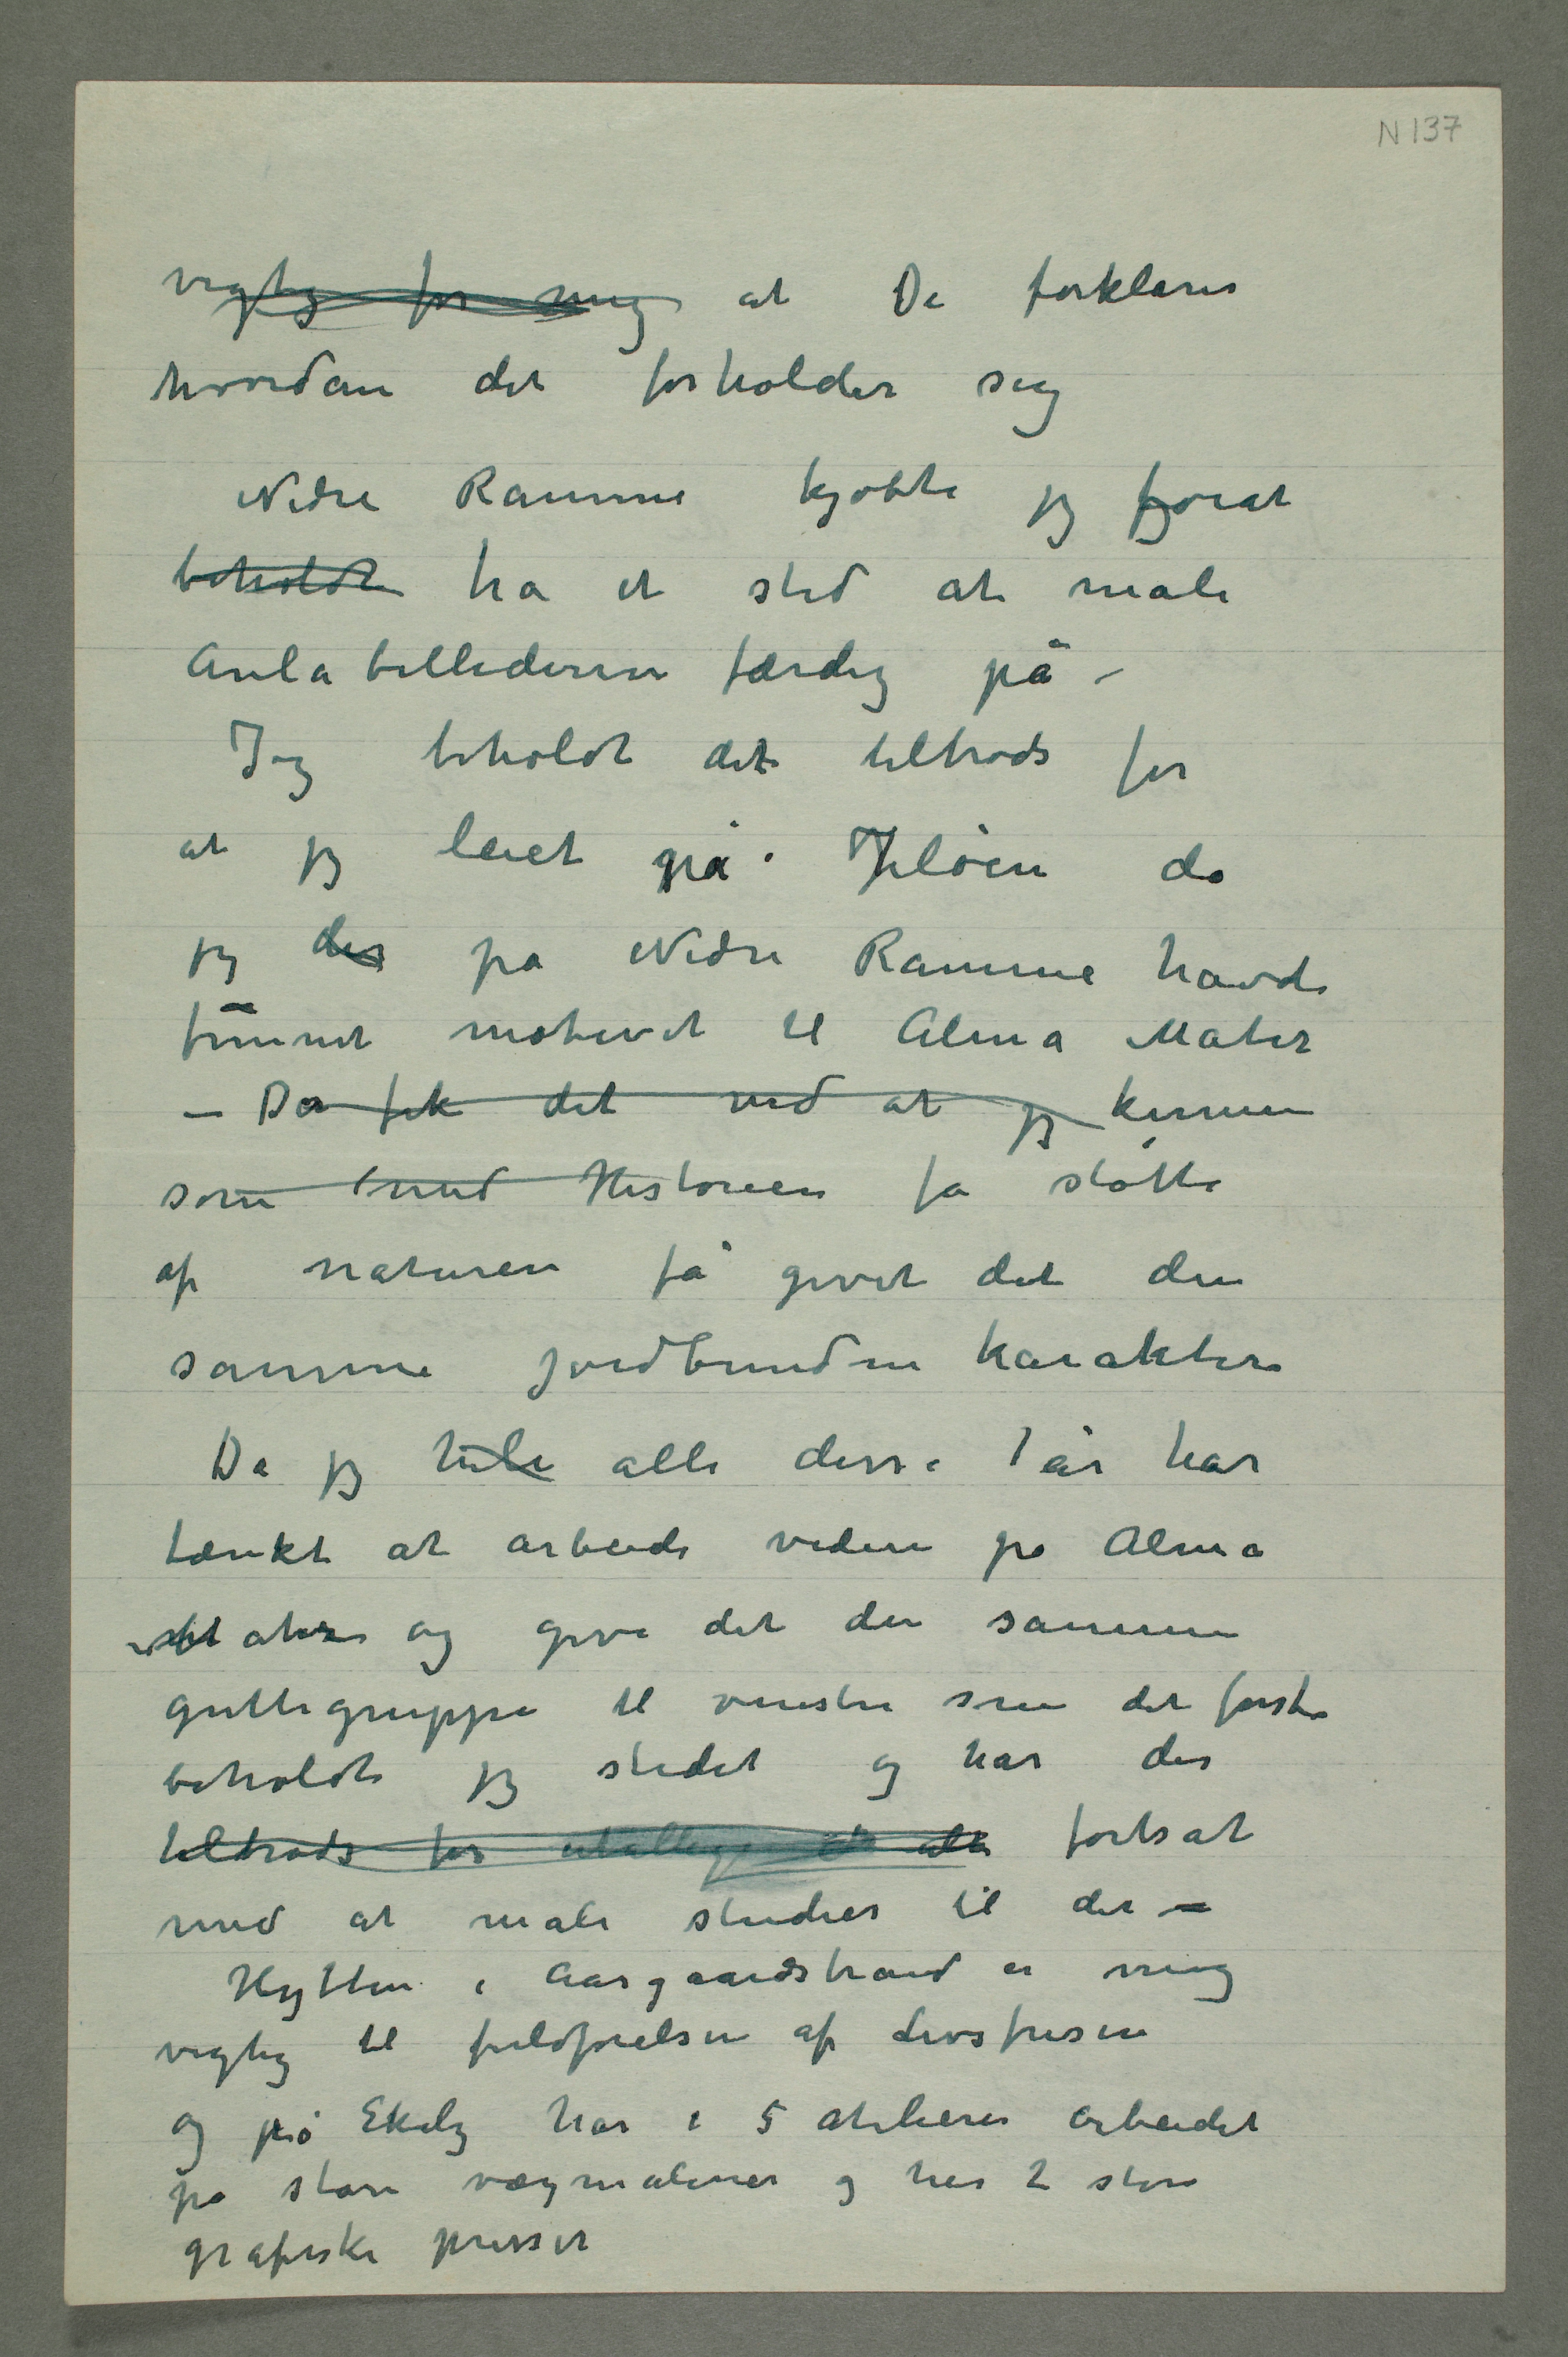 N 137
vigtig for mig at De forklarer
hvordan det forholder sig
Nedre Ramme kjøbte jeg forat
beholdt ha et sted at male
Aulabillederne færdig på –
Jeg beholdt det tiltrods for
at jeg leiet på Jeløen da
jeg der på Nedre Ramme havde
funnet motivet til Alma Mater
– Der fik det ved at jeg kunne
som med Historien få støtte
af naturen få givet det den
samme jordbundne karakter
Da jeg hele alle disse år har
tænkt at arbeide videre på Alma
Mater og give det den samme
guttegruppe til venstre som det første
beholdt jeg stedet og har der
tiltrods for utallige alle fortsat
med at male studier til det –
Hytten i Aasgaardstrand er mig
vigtig til fuldførelsen af Livsfrisen
og på Ekely har i 5 atelierer arbeidet
på store vægmalerier og har 2 store
grafiske presser